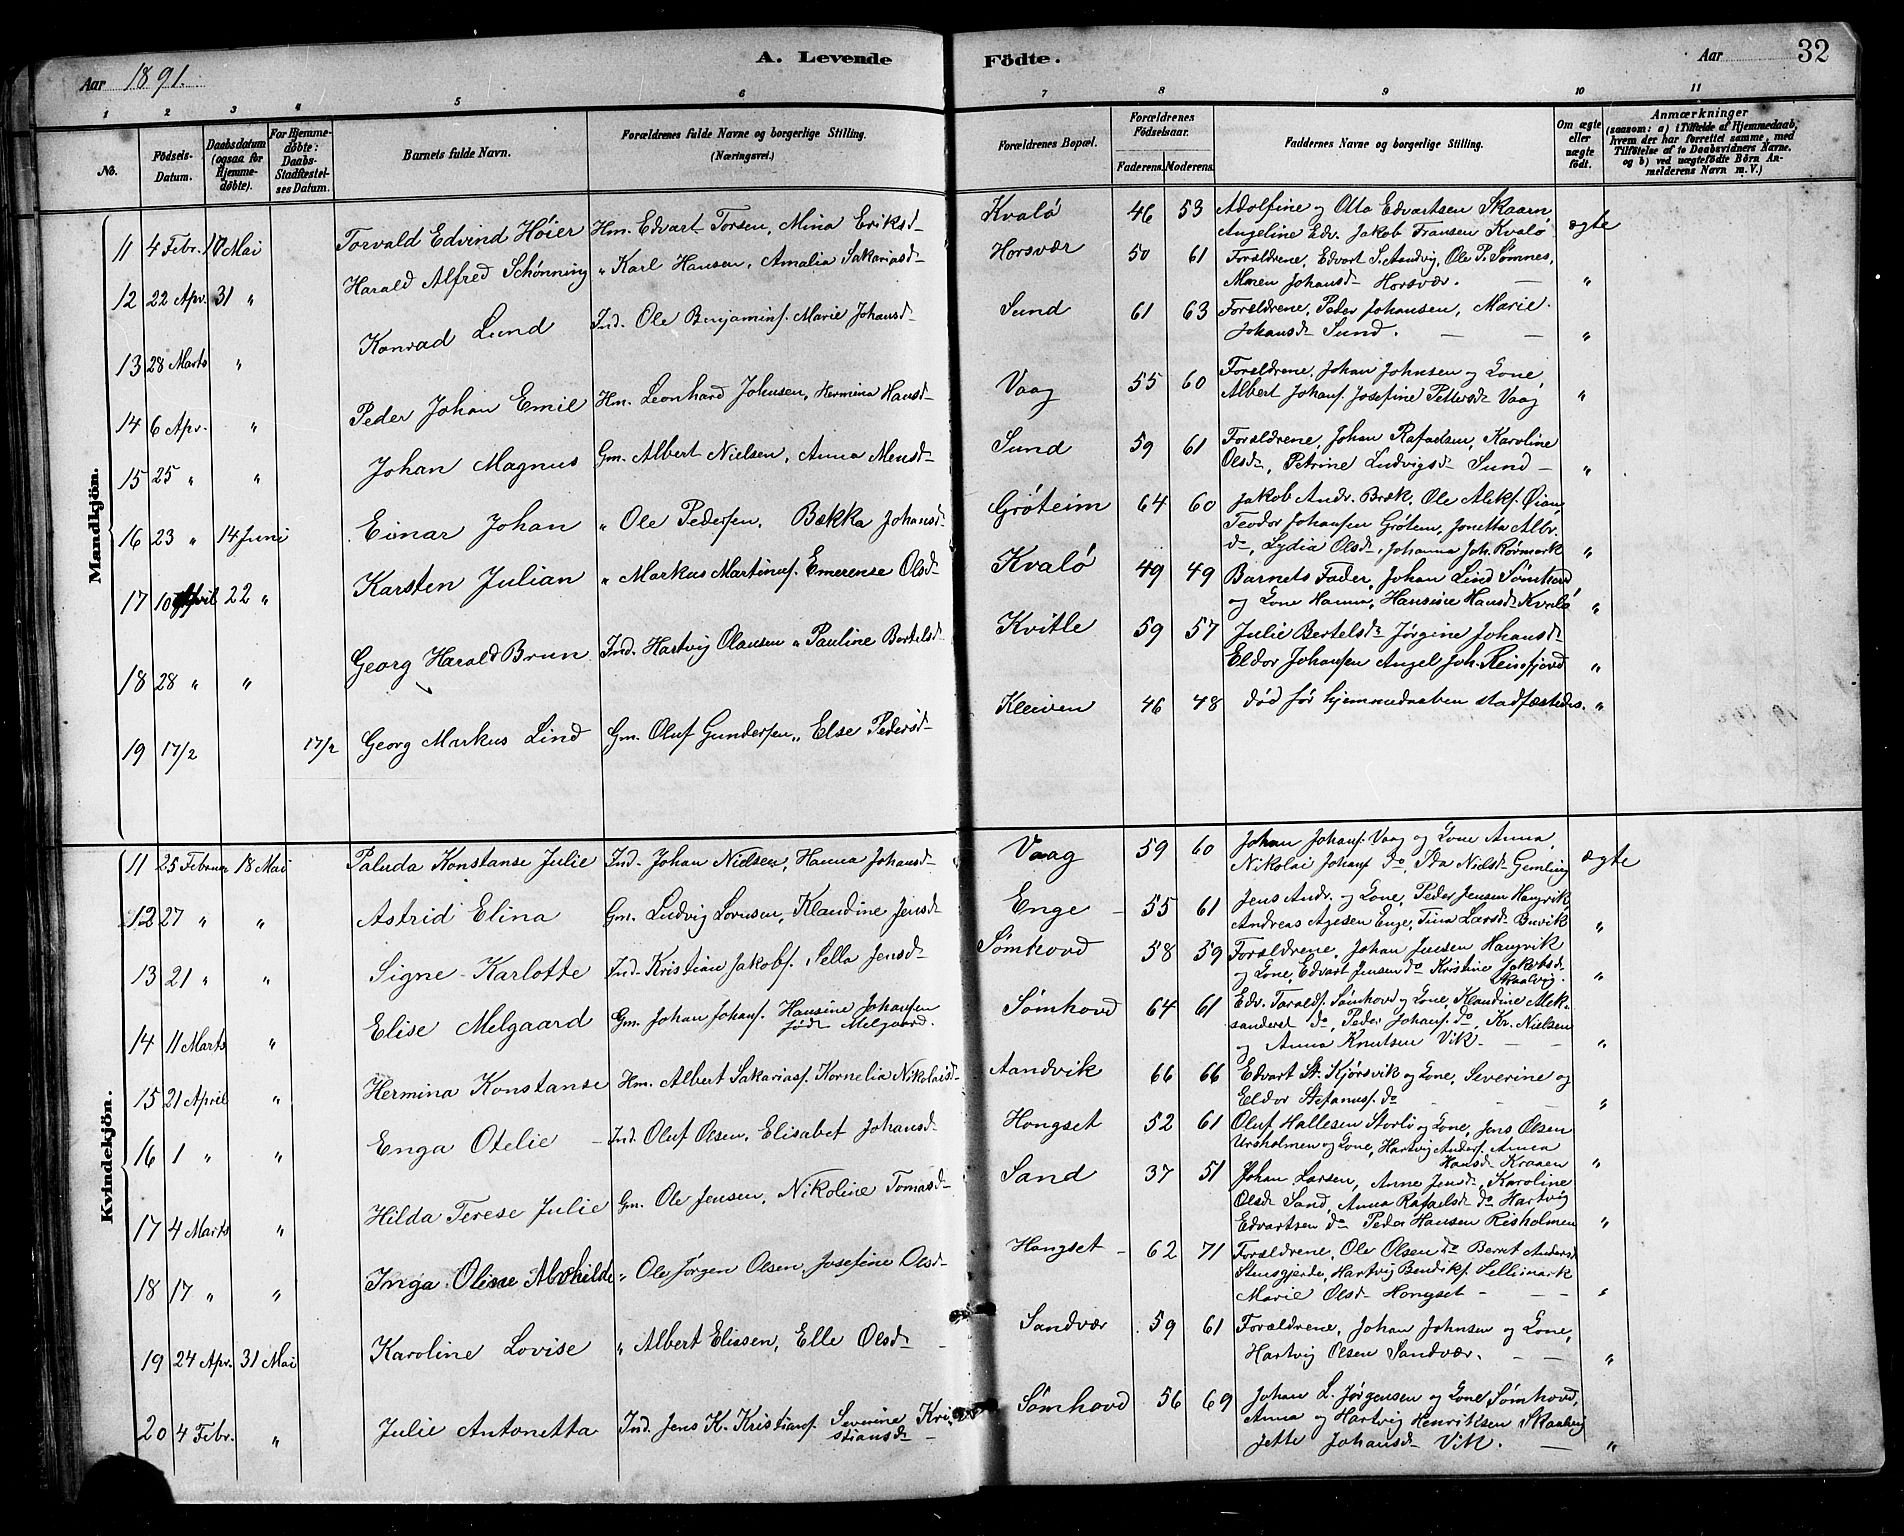 A. Levende Födte.
Aar 1891.
Aar 32
1 2 3 4 5 6 7 8 9 10 11
No.
Födsels-Datum.
Daabsdatum (ogsaa for Hjemmedøbte).
For Hjemmedøbte: Daabs-Stadfæstelses Datum.
Barnets fulde Navn.
Forældrenes fulde Navne og borgerlige Stilling.
(Næringsvei.)
Forældrenes Bopæl.
Forældrenes Födselsaar.
Faderens. Moderens.
Faddernes Navne og borgerlige Stilling.
Om ægte eller uægte födt.
Anmærkninger
(saasom: a) i Tilfælde af Hjemmedaab, hvem der har forrettet samme, med Tilföielse af to Daabsvidners Navne. og b) ved uægtefödte Börn Anmelderens Navn m. V.)
Mandkjön.
11 4 Febr. 10 Mai Torvald Edvind Høier Hm. Edvart Torsen, Mina Eriksd- Kvalö 46 53 Adolfine og Otto Edvartsen Skaarn,
Angeline Edv. Jakob Fransen Kvalö ægte
12 22 Apr. 31 " Harald Alfred Schønning " Karl Hansen, Amalia Sakariasd- Horsvær 50 61 Forældrene, Edvart S. Aandvig, Ole P. Sømnes,
Maren Johansd- Horsvær. — "
13 28 Marts " Konrad Lund Ind. Ole Benjamins. Marie Johansd- Sund 61 63 Forældrene, Peder Johansen, Marie
Johansd- Sund. — — "
14 6 Apr. " Peder Johan Emil Hm. Leonhard Johnsen, Hermina Hansd- Vaag 55 60 Forældrene, Johan Johnsen og Kone,
Albert Johans. Josefine Pettersd- Vaag "
15 25 " " Johan Magnus Gm. Albert Nielsen, Anna Mensd- Sund 59 61 Forældrene, Johan Rafaelsen, Karoline
Olsd-, Petrine Ludvigsd- Sund- "
16 23 " 14 Juni Einar Johan " Ole Pedersen, Bækka Johansd- Gröteim 64 60 Jakob Andr. Bræk, Ole Aleks. Øian,
Teodor Johansen Grötem, Jonetta Albr.
d-, Lydia Olsd-, Johanna Joh. Rörmark "
17 10 April 22 " Karsten Julian " Markus Martinus. Emerense Olsd- Kvalö 49 49 Barnets Fader, Johan Lind Sømhovd
og Kone Hanna, Hansine Hansd- Kvalö "
18 28 " " Georg Harald Brun Ind. Hartvig Olausen " Pauline Bertelsd- Kvitle 59 57 Julie Bertelsd- Jørgine Johansd-
Eldor Johansen Angel Joh. Reinsfjord "
19 17/2 17/2 Georg Markus Lind Gm. Oluf Gundersen " Else Pedersd- Kleiven 46 48 død før hjemmedaaben stadfæstedes. "
Kvindekjön.
11 25 Februar 18 Mai Paluda Konstanse Julie Ind. Johan Nielsen, Hanna Johansd- Vaag 59 60 Johan Johans. Vaag og Kone Anna,
Nikolai Johans. do, Ida Nielsd- Gemling ægte
12 27 " " Astrid Elina Gm. Ludvig Lornsen, Klaudine Jensd- Enge 55 61 Jens Andr. og Kone, Peder Jensen Hangvik
Andreas Agesen Enge, Tina Larsd- Buvik "
13 21 " " Signe Karlotte Ind. Kristian Jakobs. Sella Jensd- Sømhovd 58 59 Forældrene, Johan Jensen Hangvik
og Kone, Edvart Jensen do Kristine Jakobsd-
Skaalvig. "
14 11 Marts " Elise Melgaard Gm. Johan Johans. Hansine Johansen
født Melgaard. Sømhovd 64 61 Edv. Taralds. Sømhovd og Kone, Klaudine Alek-
sanderst do, Peder Johans. do, Kr. Nielsen
og Anna Knutsen Vik — — "
15 21 April " Hermina Konstanse Hm. Albert Sakarias. Kornelia Nikolaisd- Aandvik 66 66 Edvart St. Kjørsvik og Kone, Severine og
Eldor Stefanus. do — — "
16 1 " " Enga Otelie Ind. Oluf Olsen, Elisabet Johansd- Hongset 52 61 Oluf Hallesen Storlö og Kone, Jens Olsen
Ursholmen og Kone, Hartvig Anders. Anna
Hansd- Kraaen "
17 4 Marts " Hilda Terese Julie Gm. Ole Jensen, Nikoline Tomasd- Sand 37 51 Johan Larsen, Anne Jensd-, Karoline
Olsd- Sand, Anna Rafaelsd- do Hartvig
Edvartsen do Peder Hansen Risholmen "
18 17 " " Inga Oline Alvhilde " Ole Jørgen Olsen, Josefine Olsd- Hongset 62 71 Forældrene, Ole Olsen do Bernt Anders.
Stensgjerde, Hartvig Bendiks. Sellismark
Marie Olsd- Hongset — — "
19 24 Apr. 31 Mai Karoline Lovise " Albert Eliesen, Elle Olsd- Sandvær 59 61 Forældrene, Johan Johnsen og Kone,
Hartvig Olsen Sandvær. — "
20 4 Febr. " Julie Antonetta Ind. Jens K. Kristians. Severine Kri-
stiansd- Sømhovd 56 69 Johan L. Jørgensen og Kone Sømhovd,
Anna og Hartvig Henriksen Skaalvig
Jette Johansd- Vik. — "